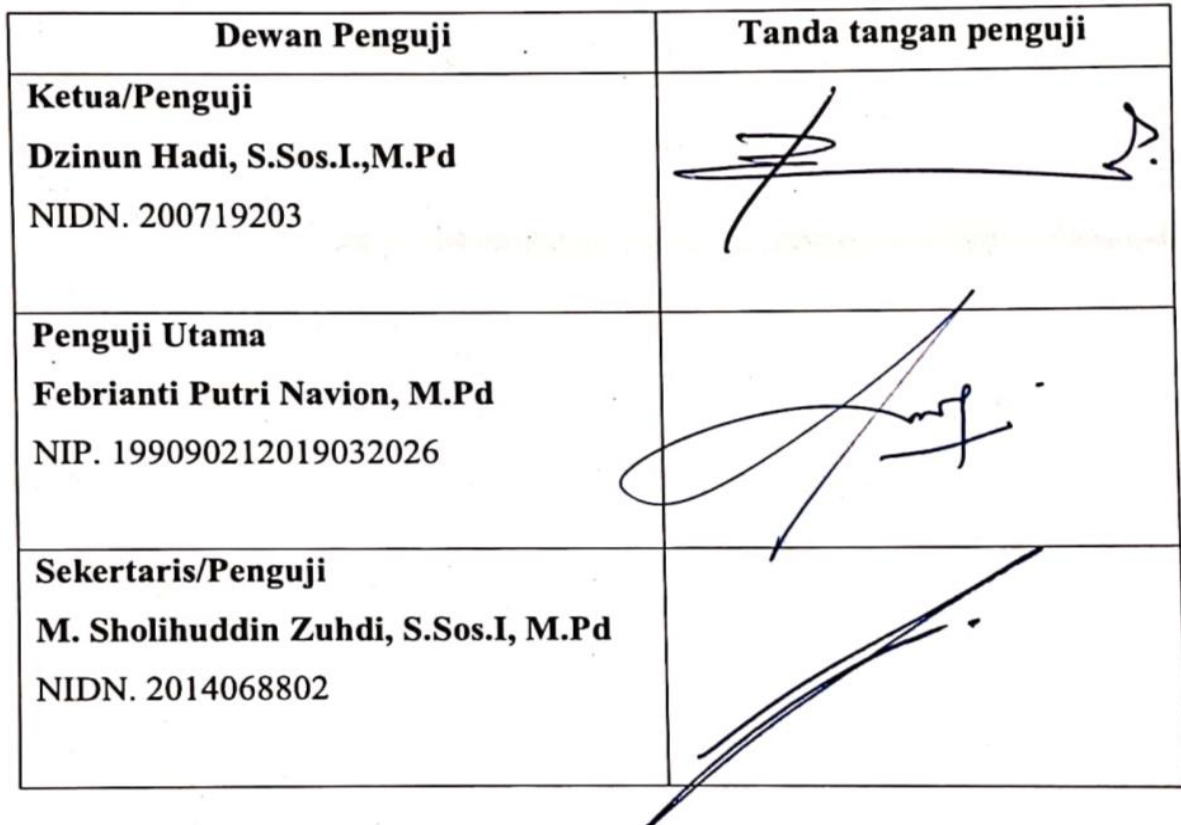 Dewan Penguji
Tanda tangan penguji
Ketua/Penguji
Dzinun Hadi, S.Sos.I.,M.Pd
NIDN. 200719203
Penguji Utama
Febrianti Putri Navion, M.Pd
NIP. 199090212019032026
Sekertaris/Penguji
M. Sholihuddin Zuhdi, S.Sos.I, M.Pd
NIDN. 2014068802